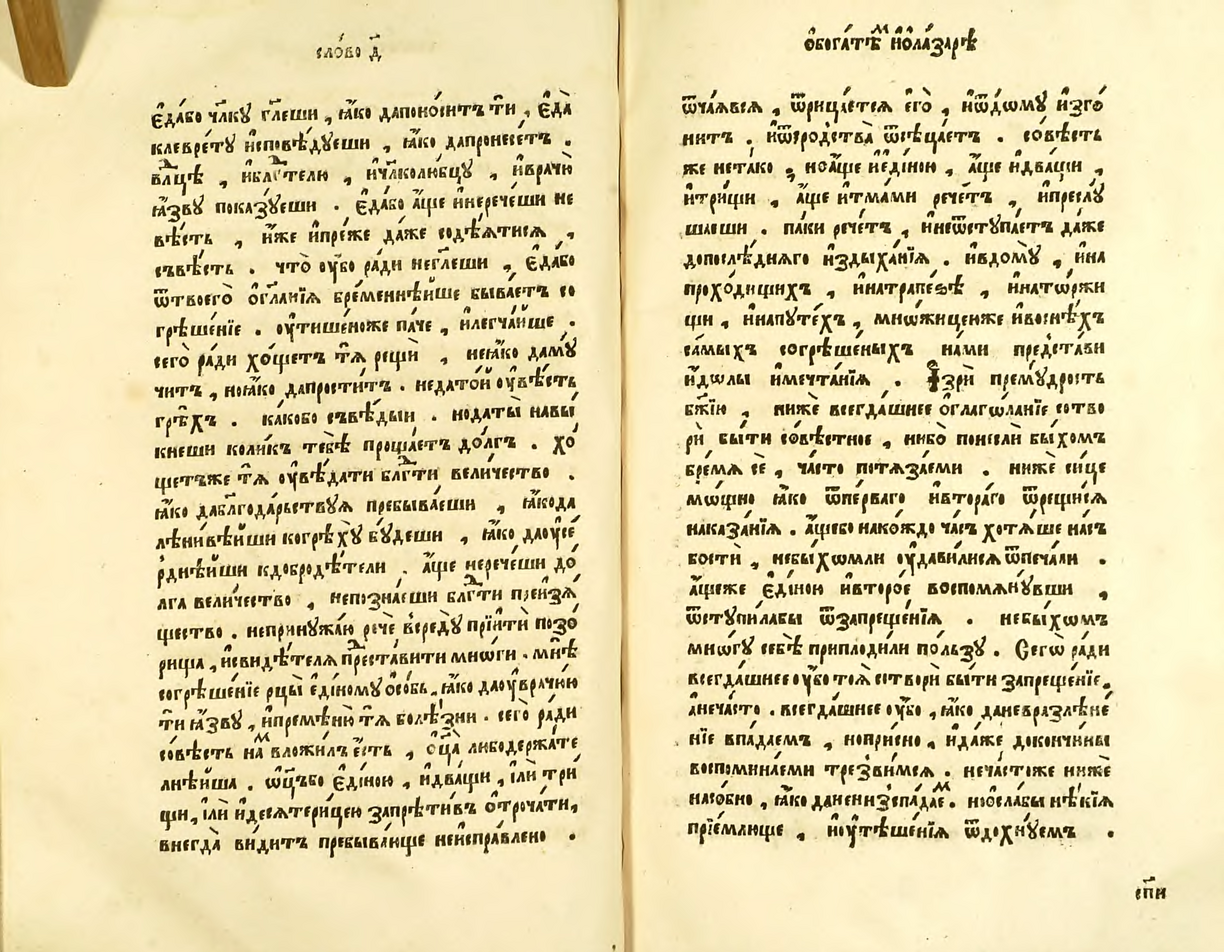 сло́во д҃
є҆да́бо чл҃кꙋ гл҃еши , ꙗ҆́ко дапоно́ситъ ти̏ , є҆да̀
клевре́тꙋ и҆сповѣ́дꙋеши , ꙗ҆́ко дапронесе́тъ .
влⷣцѣ , и҆блгⷣтелю , и҆чл҃колю́бцꙋ , и҆врачю̀
ꙗ҆́звꙋ пока́зꙋеши . є҆да́бо а҆́ще и҆нерече́ши не
вѣ́сть , и҆́же и҆пре́же да́же содѣ́ѧтисѧ ,
съвѣ́сть . что̀ ᲂу҆́бо ра́ди негл҃еши , є҆да́бо
ѿтвоего̀ о҆гл҃а́нїѧ бре́меннѣйше быва́етъ со
грѣше́нїе . ᲂу҆тише́ноже па́че , и҆легча́йше .
сего̀ ра́ди хо́щетъ тѧ̀ рещѝ , неꙗ҆́ко да́мꙋ
читъ , ноꙗ҆́ко дапрости́тъ . неда́то́й ᲂу҆вѣ́сть
грѣ́хъ . ка́кобо съвѣ́дый . нода́ты̀ навы́
кнеши коли́къ тебѣ̀ проща́етъ до́лгъ . хо́
щетъже тѧ̀ ᲂу҆вѣ́дати блгⷣти вели́чество .
ꙗ҆́ко даблг҃ода́рьствꙋѧ пребыва́еши , ꙗ҆́кода
лѣни́вѣйши когрѣ́хꙋ бꙋ́деши , ꙗ҆́ко даᲂу҆се́
рднѣ́йши кдобродѣ́тели . а҆́ще нерече́ши до́
лга вели́чество , непозна́еши блгⷣти преизѧ́
щество . непринꙋжа́ю рече̏ всередꙋ̀ прїитѝ позо́
рища , и҆свидѣ́телѧ преⷣста́вити мно́ги . мнѣ̀
согрѣше́нїе рцы̀ є҆ди́номꙋ ѻ҆со́бь, ꙗ҆́ко даᲂу҆врачю̀
ти ꙗ҆́звꙋ , и҆премѣню̀ тѧ̀ болѣ́зни . сего̀ ра́ди
со́вѣсть наⷨ вложи́лъ є҆́сть , ѻ҆ц҃а̀ либодержа́те
лнѣйша . ѻ҆ц҃ъбо є҆ди́ною , и҆два́щи , и҆лѝ три
щи, и҆лѝ и҆десѧтери́цею запрѣти́въ ѻ҆троча́ти,
внегда̀ ви́дитъ пребыва́юще неиспра́влено .
ѻ҆бога́тѣⷨ и҆ѻла́зарѣ
ѿча́ѧвсѧ , ѿрица́етсѧ є҆го̀ , и҆ѿдо́мꙋ и҆зго́
нитъ . и҆ѿро́дства ѿсѣца́етъ . со́вѣсть
же не та́ко , ноа҆́ще и҆еди́ною , а҆́ще и҆два́щи ,
и҆три́щи , а҆́ще и҆тма́ми рече́тъ , и҆преслꙋ́
шаеши . па́ки рече́тъ , и҆неѿстꙋпа́етъ да́же
допослѣ́днѧго и҆здыха́нїѧ . и҆вдомꙋ̀ , и҆на
проходи́щихъ , и҆натрапе́зѣ , и҆нато́ржи
щи , и҆напꙋте́хъ , мно́жиценже и҆восне́хъ
са́мыхъ согрѣше́ныхъ на́ми предста́ви
и҆́долы и҆мечта́нїѧ . І҆зрѝ премꙋ́дрость
бж҃їю , нижѐ всегда́шнее ѻ҆глаго́ланїе сотво
рѝ бы́ти со́вѣстное , ни́бо понеслѝ бы́хомъ
бре́мѧ се̏ , ча́сто потѧза́еми . нижѐ си́це
мо́щно ꙗ҆́ко ѿпе́рваго и҆втора́го ѿрещи́сѧ
наказа́нїѧ . а҆́щебо нако́ждо ча́съ хотѧ́ше на́съ
бости̏ , небы́хомли ᲂу҆дави́лисѧ ѿпеча́ли .
а҆́щеже є҆ди́ною и҆второ́е воспомѧнꙋ́вши ,
ѿстꙋпи́лабы ѿзапреще́нїѧ . небы́хомъ
мно́гꙋ себѣ̀ приплоди́ли по́льзꙋ . Сего̀ ра́ди
всегда́шнее ᲂу҆́бо тоѧ̀ сътворѝ бы́ти запреще́нїе,
а҆неча́сто . всегда́шнее ᲂу҆́бо , ꙗ҆́ко даневразлѣне́
нїе впада́емъ , нопри́сно , и҆да́же докончи́ны
воспомина́еми трезви́мсѧ . неча́стоже нижѐ
насо́бно , ꙗ҆́ко дане низпада́еⷨ . нооⷭ҇ла́бы нѣ́кїѧ
прїе́млюще , и҆ᲂу҆тѣше́нїѧ ѿдо́хнꙋемъ .
сп҃и